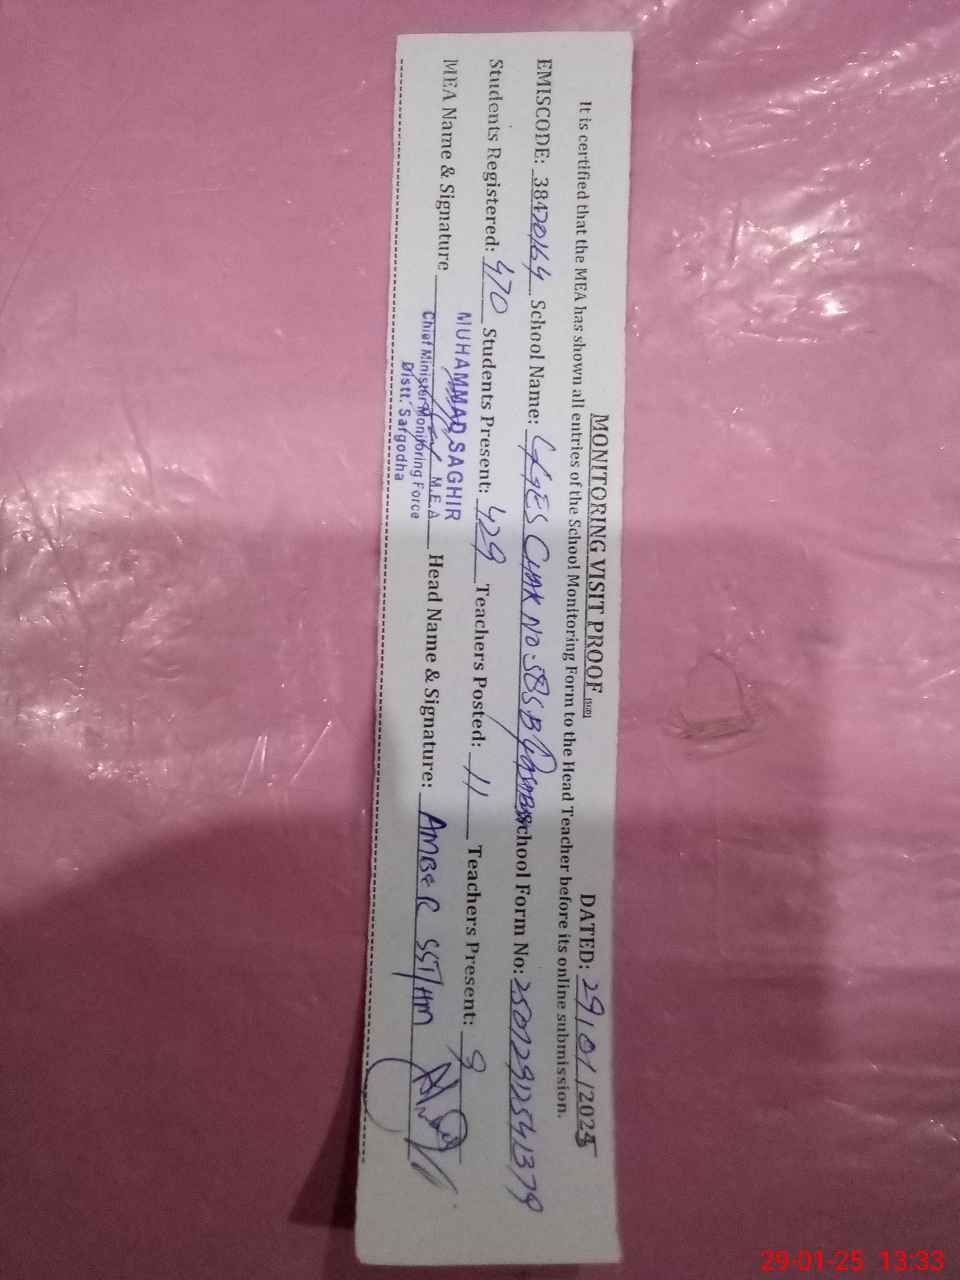 MONITORING VISIT PROOF DATED: 29/01/2025
It is certified that the MEA has shown all entries of the School Monitoring Form to the Head Teacher before its online submission.
EMISCODE: 38420164 School Name: GGES CHAK NO. 58SB School Form No:
Students Registered: 470 Students Present: 429 Teachers Posted: 11 Teachers Present: 9
MEA Name & Signature Head Name & Signature: AMBER SST/HM
MUHAMMAD SAGHIR
M.E.A
Chief Minister Monitoring Force
Distt. Sargodha
29-01-25 13:33